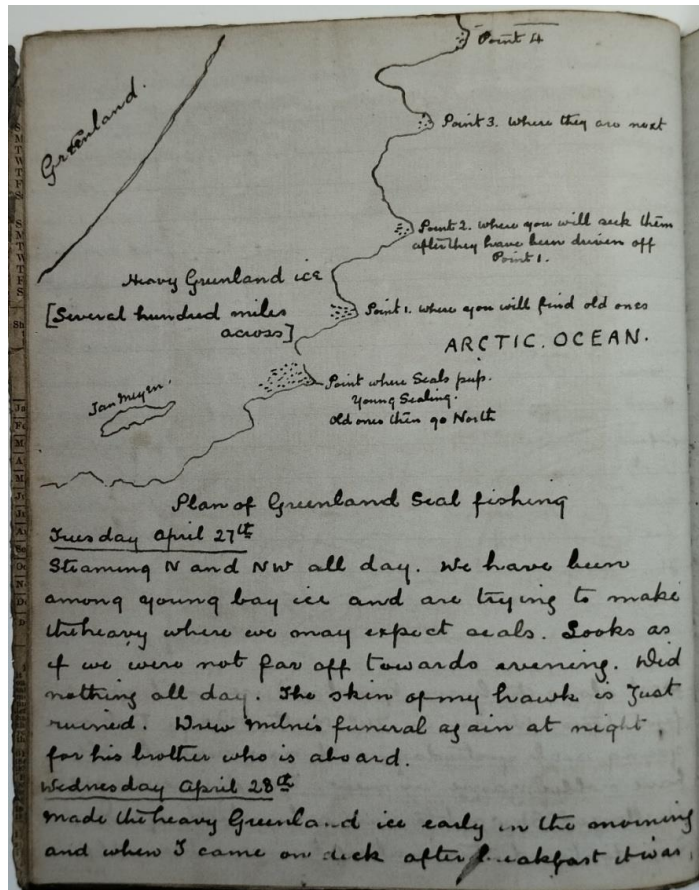 Greenland.
Point 4
Point 3. Where they are next
Point 2. Where you will seek them
after they have been driven off
Point 1.
Heavy Greenland ice
[Several hundred miles
across]
Point 1. Where you will find old ones
ARCTIC. OCEAN.
Jan Meyen.
Point where Seals pup.
Young Sealing.
Old ones then go North
Plan of Greenland Seal fishing
Tuesday April 27th
Steaming N and NW all day. We have been
among young bay ice and are trying to make
the heavy where we may expect seals. Looks as
if we were not far off towards evening. Did
nothing all day. The skin of my hawk is Just
ruined. Drew Milne's funeral again at night,
for his brother who is aboard.
Wednesday April 28th
Made the heavy Greenland ice early in the morning
and when I came on deck after breakfast it was